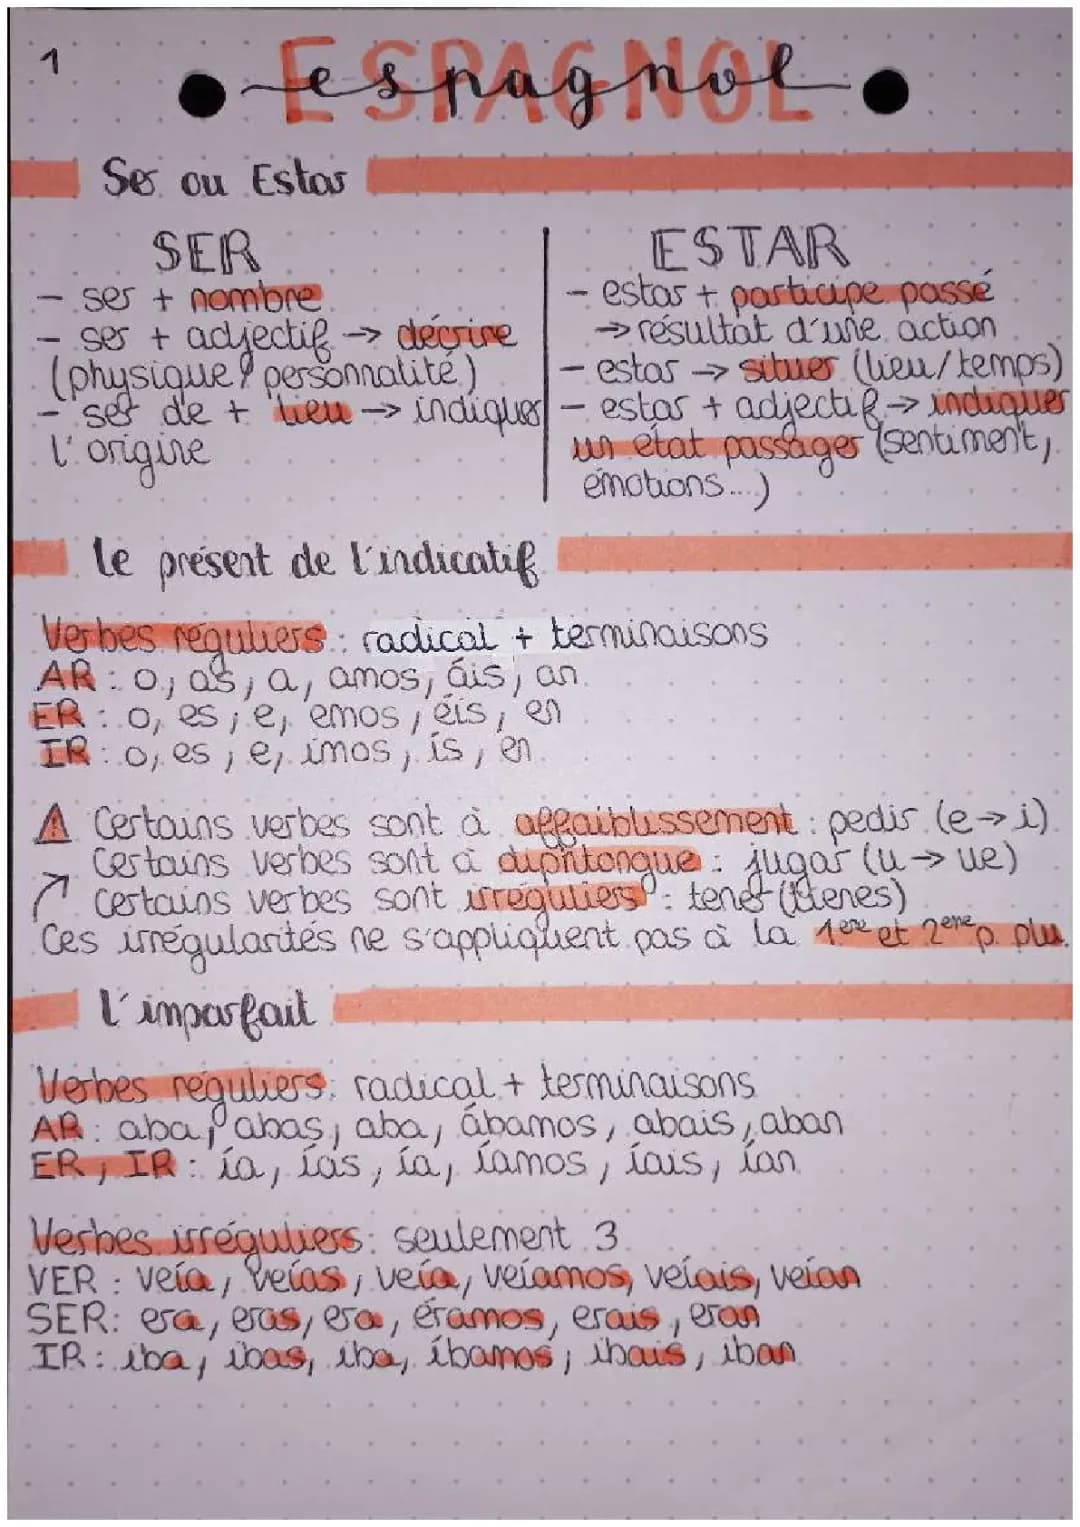 1
ESPAGNOL
espagnol
Ser ou Estar
SER
- ser + nombre
- ser + adjectif → décrire
(physique, personnalité)
- ser de + lieu → indiquer
l'origine
ESTAR
- estar + participe passé
→ résultat d'une action
- estar → situer (lieu/temps)
- estar + adjectif → indiquer
un état passager (sentiment,
émotions...)
Le présent de l'indicatif
Verbes réguliers : radical + terminaisons
AR : o, as, a, amos, áis, an.
ER : o, es, e, emos, éis, en
IR : o, es, e, imos, ís, en.
⚠ Certains verbes sont à affaiblissement : pedir (e → i)
Certains verbes sont à diphtongue : jugar (u → ue)
↗ Certains verbes sont irréguliers : tener (tienes)
Ces irrégularités ne s'appliquent pas à la 1ere et 2eme p. plu.
L'imparfait
Verbes réguliers : radical + terminaisons
AR : aba, abas, aba, ábamos, abais, aban
ER, IR : ía, ías, ía, íamos, íais, ían
Verbes irréguliers : seulement 3
VER : veía, veías, veía, veíamos, veíais, veían
SER : era, eras, era, éramos, erais, eran
IR : iba, ibas, iba, íbamos, ibais, iban